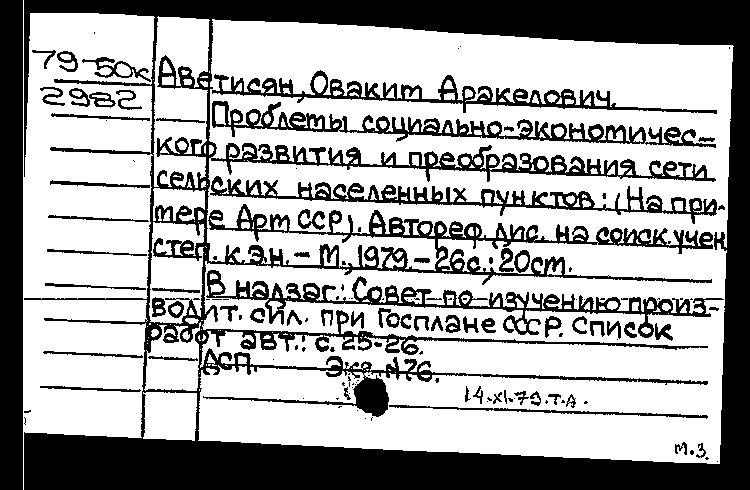 79-50к
2982
Аветисян, Оваким Аракелович.
Проблемы социально-экономичес-
кого развития и преобразования сети
сельских населенных пунктов: (На при-
мере Арм ССР). Автореф. дис. на соиск. учен.
степ. к.э.н. - М., 1979. - 26с.; 20см.
В надзаг.: Совет по изучению произ-
водит. сил. при Госплане СССР. Список
работ авт.: с. 25-26.
ДСП. Экз. №76.
14.XI.79.Т.А.
м.з.